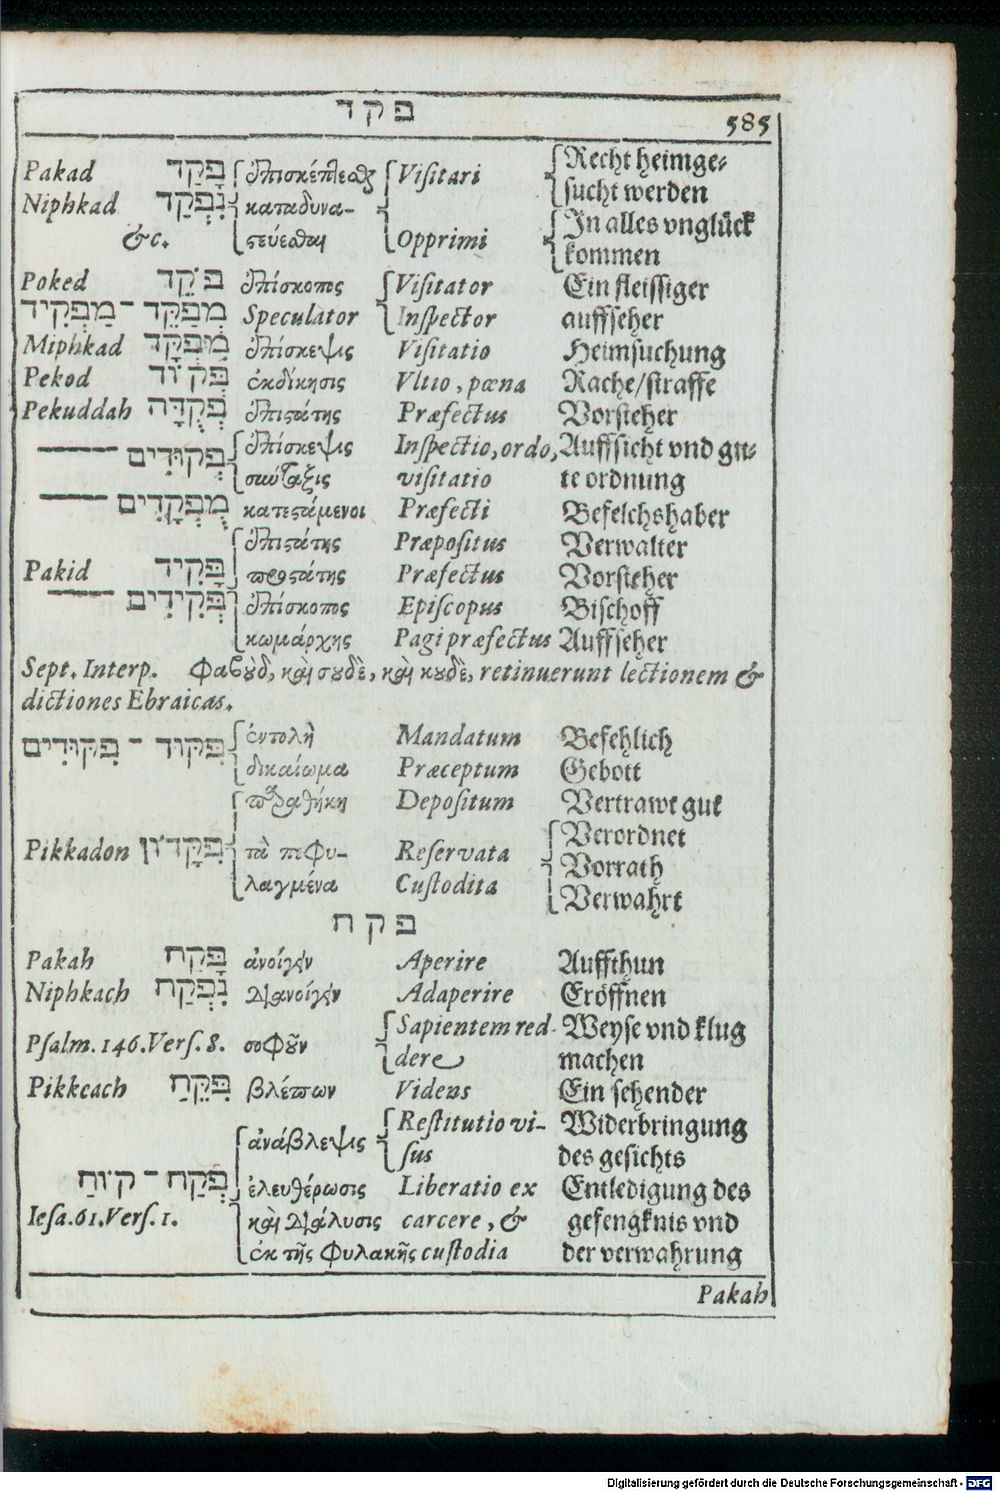 פקד
585
Pakad פָּקַד ἐπισκέπτεσθαι Visitari Recht heimge-
Niphkad נִפְקַד καταδυνα- sucht werden
&c. στεύεσθαι Opprimi In alles vnglück
kommen
Poked פֹּקֵד ἐπίσκοπος Visitator Ein fleissiger
מְפַקֵּד - מַפְקִיד Speculator Inspector auffseher
Miphkad מִפְקָד ἐπίσκεψις Visitatio Heimsuchung
Pekod פְּקוֹד ἐκδίκησις Vltio, pœna Rache/straffe
Pekuddah פְּקֻדָּה ἐπιστάτης Præfectus Vorsteher
ἐπίσκεψις Inspectio, ordo, Auffsicht vnd gu-
פְּקוּדִים σύνταξις visitatio te ordnung
מֻפְקָדִים κατεστάμενοι Præfecti Befelchshaber
ἐπιστάτης Præpositus Verwalter
Pakid פָּקִיד προστάτης Præfectus Vorsteher
פְּקִידִים ἐπίσκοπος Episcopus Bischoff
κωμάρχης Pagi præfectus Auffseher
Sept. Interp. Φακοὺδ, καὶ σουδὲ, καὶ κουδὲ, retinuerunt lectionem &
dictiones Ebraicas.
פִּקּוּד - פִּקּוּדִים ἐντολὴ Mandatum Befehlich
δικαίωμα Præceptum Gebott
παραθήκη Depositum Vertrawt gut
Verordnet
Pikkadon פִּקָּדוֹן τὰ πεφυ- Reservata Vorrath
λαγμένα Custodita Verwahrt
פקח
Pakah פָּקַח ἀνοίγειν Aperire Auffthun
Niphkach נִפְקַח διανοίγειν Adaperire Eröffnen
Psalm. 146. Vers. 8. σοφοῦν Sapientem red- Weyse vnd klug
dere machen
Pikkeach פִּקֵּחַ βλέπων Videns Ein sehender
ἀνάβλεψις Restitutio vi- Widerbringung
sus des gesichts
פְּקַח - קוֹחַ ἐλευθέρωσις Liberatio ex Entledigung des
Iesa. 61. Vers. 1. καὶ διάλυσις carcere, & gefengknis vnd
ἐκ τῆς φυλακῆς custodia der verwahrung
Pakah
Digitalisierung gefördert durch die Deutsche Forschungsgemeinschaft - DFG